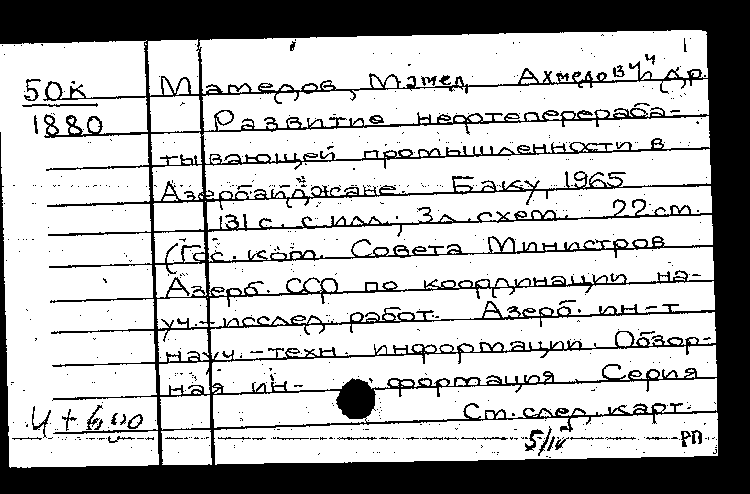 50к
1880
Мамедов, Мамед Ахмедович и др.
Развитие нефтеперераба-
тывающей промышленности в
Азербайджане. Баку, 1965
131 с. с илл.; 3 л. схем. 22 см.
(Гос. ком. Совета Министров
Азерб. ССР по координации на-
уч.-исслед. работ. Азерб. ин-т
науч.-техн. информации. Обзор-
ная ин- формация. Серия
См. след. карт.
5/IV РП